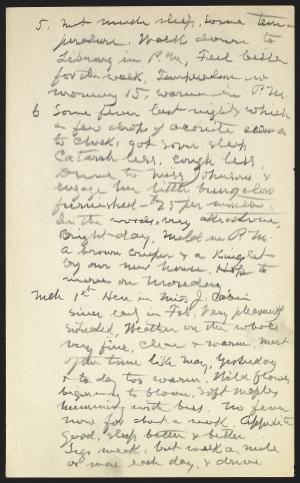 5. Not much sleep, some tem-
perature. Walk down to
Library in P.M. Feel better
for the walk. Temperature in
morning 15, warmer in P.M.
6 Some fever last night, which
a few drops of aconite seems
to check; got some sleep.
Catarrh less, cough less.
Drove to Miss Johnson's &
engage her little bungalow
furnished — $25 per month.
In the woods, very attractive.
Bright day, mild in P.M.
A brown creeper & a kinglet
by our new house. Hope to
move on Monday.
Mch 1st Here in Miss J. Cabin
since early in Feb. Very pleasantly
situated. Weather on the whole
very fine, clear & warm, most
of the time like May. Yesterday
& to day too warm. Wild flowers
beginning to bloom, soft maples
humming with bees. No fever
now for about a week. Appetite
good, sleep better & better.
Legs weak, but walk a mile
or more each day, & drive